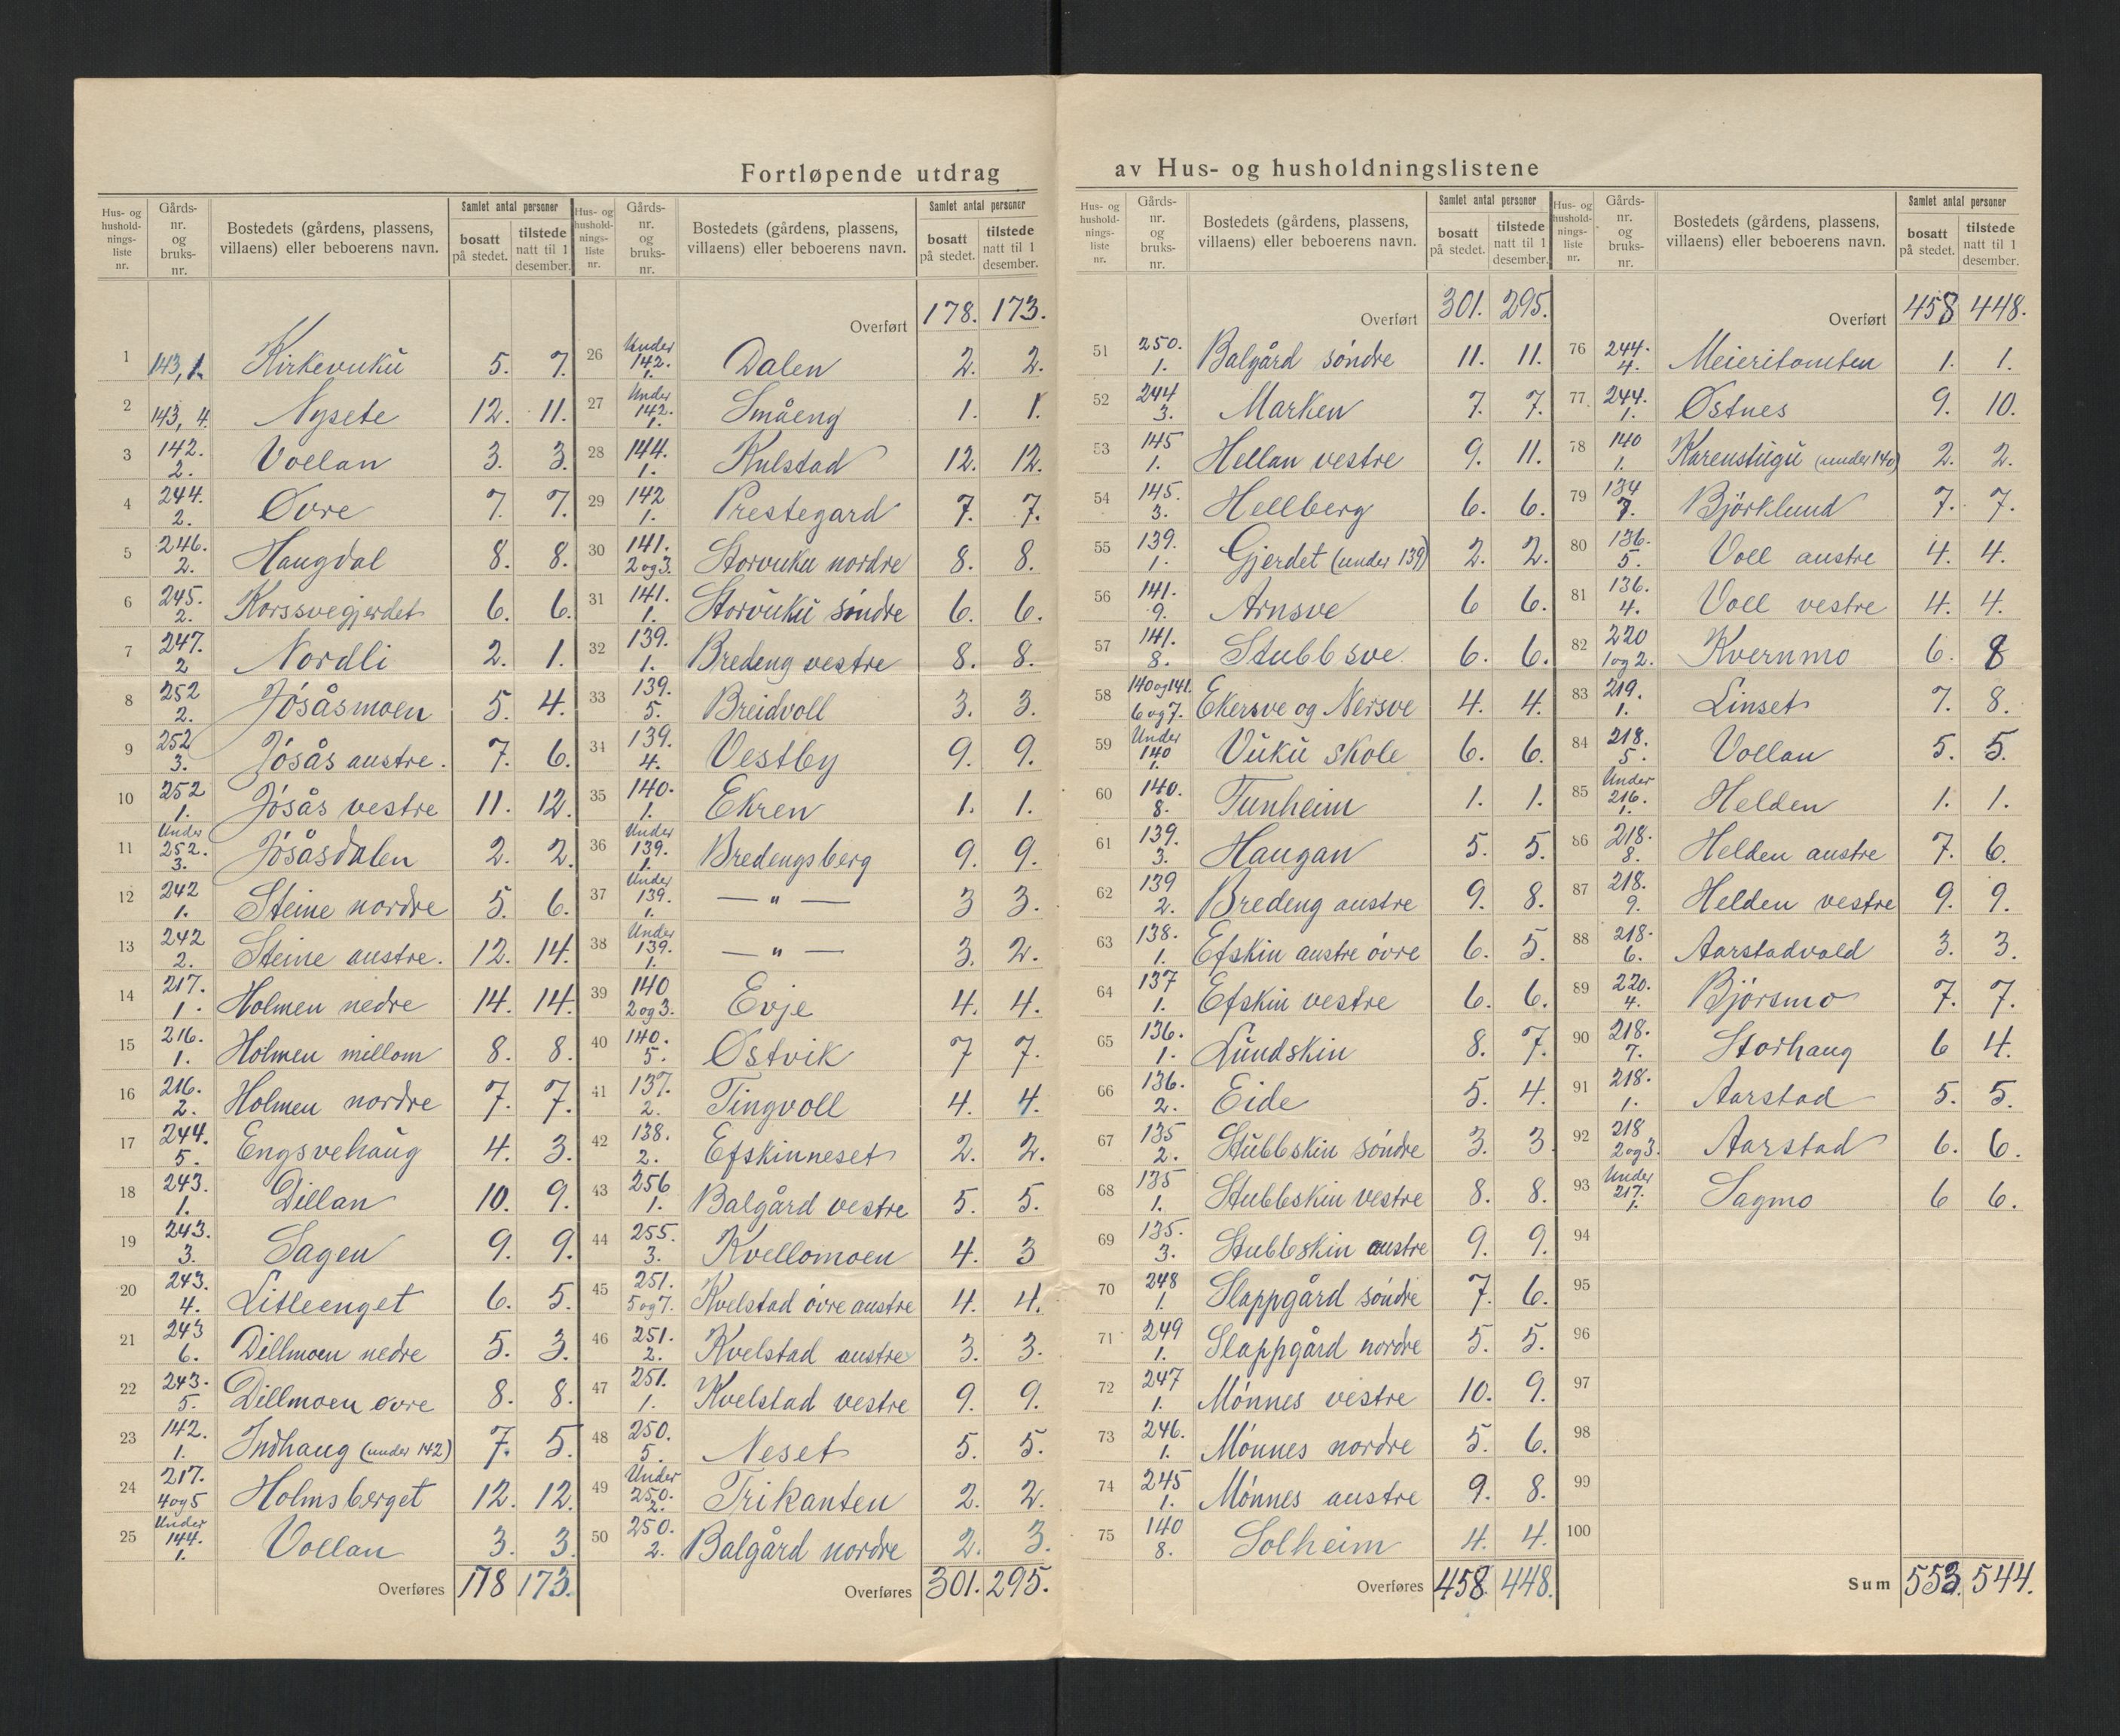 Fortløpende utdrag av Hus- og husholdningslistene
Hus- og hushold-nings-liste nr. | Gårds-nr. og bruks-nr. | Bostedets (gårdens, plassens, villaens) eller beboerens navn. | Samlet antal personer | bosatt på stedet. | tilstede natt til 1 desember.
1 143, 1. Kirkevuku 5. 7.
2 143, 4. Nysete 12. 11.
3 142. 2. Vollan 3. 3.
4 244. 2. Øvre 7. 7.
5 246. 2. Haugdal 8. 8.
6 245. 2. Korssvegjerdet 6. 6.
7 247. 2 Nordli 2. 1.
8 252 2. Jøsåsmoen 5. 4.
9 252 3. Jøsås austre. 7. 6.
10 252 1. Jøsås vestre 11. 12.
11 Under 252. 3. Jøsåsdalen 2. 2.
12 242 1. Steine nordre 5. 6.
13 242 2. Steine austre. 12. 14.
14 217. 1. Holmen nedre 14. 14.
15 216. 1. Holmen millom 8. 8.
16 216. 2. Holmen nordre 7. 7.
17 244. 5. Engsvehaug 4. 3.
18 243. 1. Dillan 10. 9.
19 243. 3. Sagen 9. 9.
20 243. 4. Litleenget 6. 5.
21 243 6. Dillmoen nedre 5. 3.
22 243. 5. Dillmoen øvre 8. 8.
23 142. 1. Indhaug (under 142) 7. 5.
24 217. 4 og 5 Holmsberget 12. 12.
25 Under 144. 1. Vollan 3. 3.
Overføres 178 173.
Hus- og hushold-nings-liste nr. | Gårds-nr. og bruks-nr. | Bostedets (gårdens, plassens, villaens) eller beboerens navn. | Samlet antal personer | bosatt på stedet. | tilstede natt til 1 desember.
Overført 178. 173.
26 Under 142. 1. Dalen 2. 2.
27 Under 142. 1. Småeng 1. 1.
28 144. 1. Kulstad 12. 12.
29 142 1. Prestegard 7. 7.
30 141. 2 og 3. Storvuku nordre 8. 8.
31 141. 1. Storvuku søndre 6. 6.
32 139. 1. Bredeng vestre 8. 8.
33 139. 5. Breidvoll 3. 3.
34 139. 4. Vestby 9. 9.
35 140. 1. Ekren 1. 1.
36 Under 139. 1. Bredengsberg 9. 9.
37 Under 139. 1. — " — 3 3.
38 Under 139. 1. — " — 3. 2.
39 140 2 og 3. Evje 4. 4.
40 140. 5. Østvik 7 7.
41 137. 2. Tingvoll 4. 4.
42 138. 2. Efskinneset 2. 2.
43 256 1. Balgård vestre 5. 5.
44 255. 3. Kvellomoen 4. 3
45 251. 5 og 7. Kvelstad øvre austre 4. 4.
46 251. 2. Kvelstad austre 3. 3.
47 251. 1. Kvelstad vestre 9. 9.
48 250. 5. Neset 5. 5.
49 Under 250. 2. Trikanten 2. 2.
50 250. 2. Balgård nordre 2. 3.
Overføres 301. 295.
Hus- og hushold-nings-liste nr. | Gårds-nr. og bruks-nr. | Bostedets (gårdens, plassens, villaens) eller beboerens navn. | Samlet antal personer | bosatt på stedet. | tilstede natt til 1 desember.
Overført 301. 295.
51 250. 1. Balgård søndre 11. 11.
52 244 3. Marken 7. 7.
53 145 1. Hellan vestre 9. 11.
54 145. 3. Hellberg 6. 6.
55 139. 1. Gjerdet (under 139) 2. 2.
56 141. 9. Arnsve 6 6.
57 141. 8. Stubbsve 6. 6.
58 140 og 141. 6 og 7. Ekersve og Nersve 4. 4.
59 Under 140 1. Vuku skole 6. 6.
60 140. 8. Tunheim 1. 1.
61 139. 3. Haugan 5. 5.
62 139 2. Bredeng austre 9. 8.
63 138. 1. Efskin austre øvre 6. 5.
64 137 1. Efskin vestre 6. 6.
65 136. 1. Lundskin 8. 7.
66 136. 2. Eide 5. 4.
67 135 2. Stubbskin søndre 3. 3
68 135 1. Stubbskin vestre 8. 8.
69 135. 3. Stubbskin austre 9. 9.
70 248 1. Slappgård søndre 7. 6.
71 249 1. Slappgård nordre 5. 5.
72 247 1. Mønnes vestre 10. 9.
73 246. 1. Mønnes nordre 5. 6.
74 245 1. Mønnes austre 9. 8.
75 140 8. Solheim 4. 4.
Overføres 458. 448.
Hus- og hushold-nings-liste nr. | Gårds-nr. og bruks-nr. | Bostedets (gårdens, plassens, villaens) eller beboerens navn. | Samlet antal personer | bosatt på stedet. | tilstede natt til 1 desember.
Overført 458 448.
76 244. 4. Meieritomten 1. 1.
77 244. 1. Østnes 9. 10.
78 140 1. Karenstugu (under 140) 2. 2.
79 134 7. Bjørklund 7. 7.
80 136. 5. Voll austre 4. 4.
81 136. 4. Voll vestre 4. 4.
82 220 1 og 2. Kvernmo 6. 8
83 219. 1. Linset 7. 8.
84 218. 5. Vollan 5. 5.
85 Under 216. 1. Helden 1. 1.
86 218. 8. Helden austre 7. 6.
87 218. 9. Helden vestre 9. 9.
88 218. 6. Aarstadvald 3. 3.
89 220. 4. Bjørsmo 7. 7.
90 218. 7. Storhaug 6 4.
91 218. 1. Aarstad 5. 5.
92 218 2 og 3. Aarstad 6. 6.
93 Under 217. 1. Sagmo 6 6.
94
95
96
97
98
99
100
Sum 553. 544.